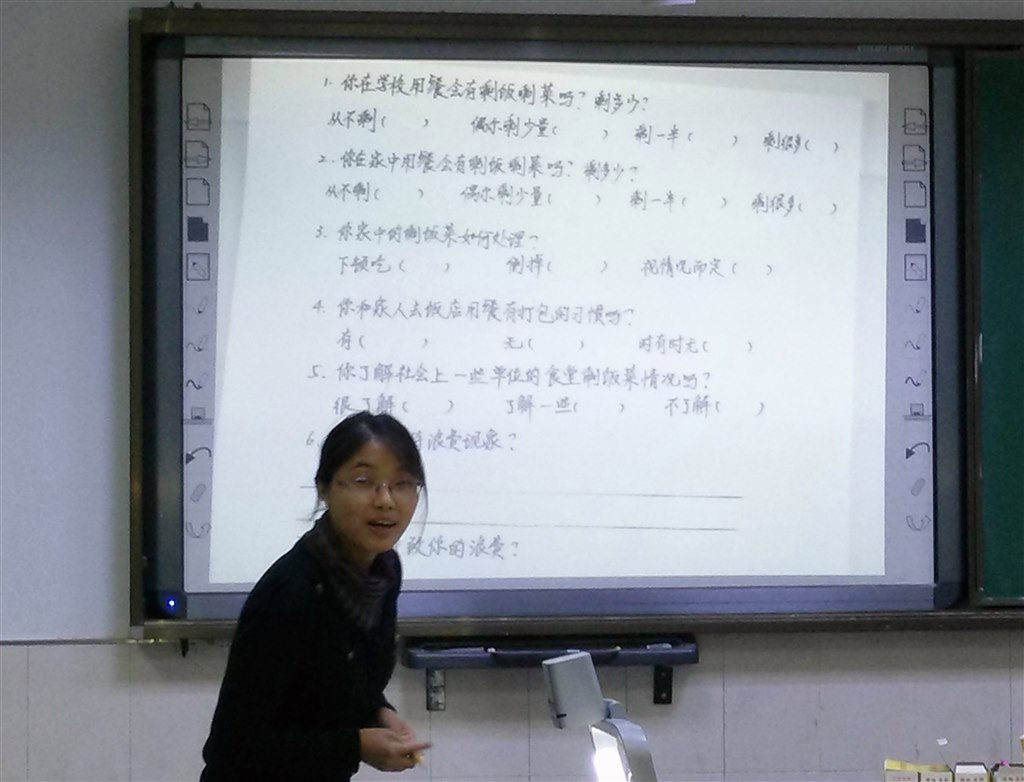 1. 你在学校用餐会有剩饭剩菜吗？剩多少？
从不剩（ ） 偶尔剩少量（ ） 剩一半（ ） 剩很多（ ）
2. 你在家中用餐会有剩饭剩菜吗？剩多少？
从不剩（ ） 偶尔剩少量（ ） 剩一半（ ） 剩很多（ ）
3. 你家中的剩饭菜如何处理？
下顿吃（ ） 倒掉（ ） 视情况而定（ ）
4. 你和家人去饭店用餐有打包的习惯吗？
有（ ） 无（ ） 时有时无（ ）
5. 你了解社会上一些单位的食堂剩饭菜情况吗？
很了解（ ） 了解一些（ ） 不了解（ ）
6. 浪费现象？
你的浪费？